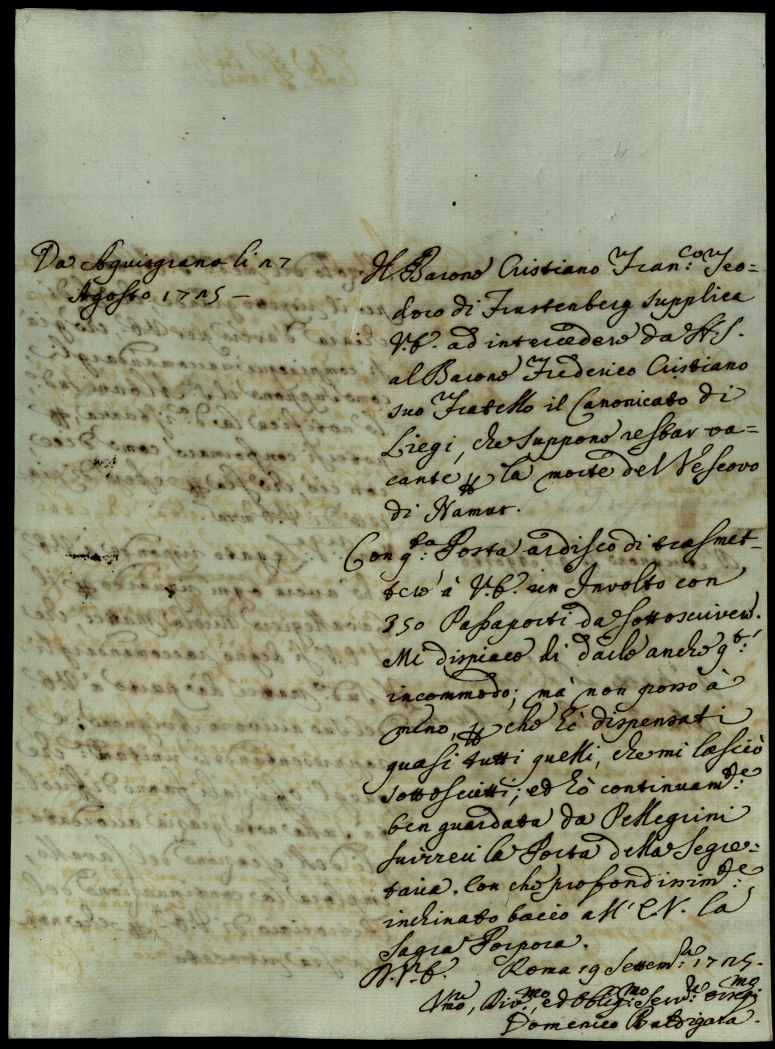 Da Aquisgrano li 27
Agosto 1725 –
Il Barone Cristiano Fran.co Teo=
doro di Frustenberg supplica
V.E. ad intercedere da N.S.
al Barone Frederico Cristiano
suo Fratello il Canonicato di
Liegi, che suppone restar va=
cante ꝑ la morte del Vescovo
di Namur.
Con q.ta Posta ardisco di trasmet=
tere à V.E. un Involto con
350 Passaporti da sottoscivere.
Mi dispiace di darle anche q.to
incommodo; mà non posso à
meno, ꝑ che hò dispensati
quasi tutti quelli, che mi lasciò
sottoscritti; ed hò continuam.te
ben guardata da Pellegrini
la Porta della Segre=
taria. Con che profondissim.te
inchinato bacio all' E.V. la
Sagra Porpora.
D.V.E. Roma 19 Settem.re 1725.
Vmo, Div.mo, ed Obblig.mo Ser.re
Domenico Baldigara.